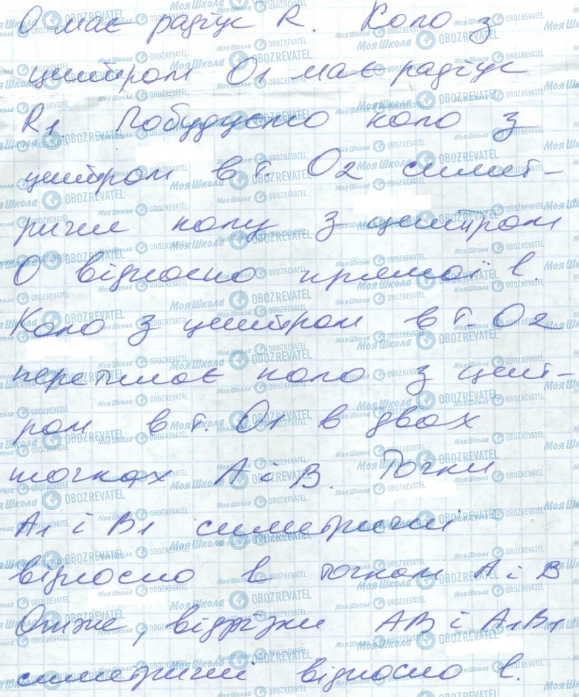 О має радіус R. Коло з
центром O1 має радіус
R1. Побудуємо коло з
центром в т. O2 симет-
ричне колу з центром
О відносно прямої l.
Коло з центром в т. O2
перетинає коло з цент-
ром в т. O1 в двох
точках A і B. Точки
A1 і B1 симетричні
відносно l точкам A і B
Отже, відрізки AB і A1B1
симетричні відносно l.